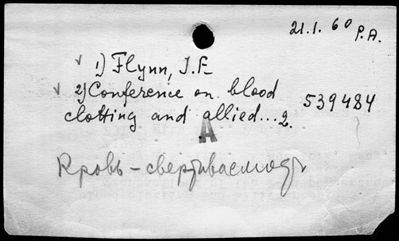 21.1.60 P.A.
√ 1) Flynn, J.E.
√ 2) Conference on blood
clotting and allied...2.
539484
A
Кровь - свертываемость